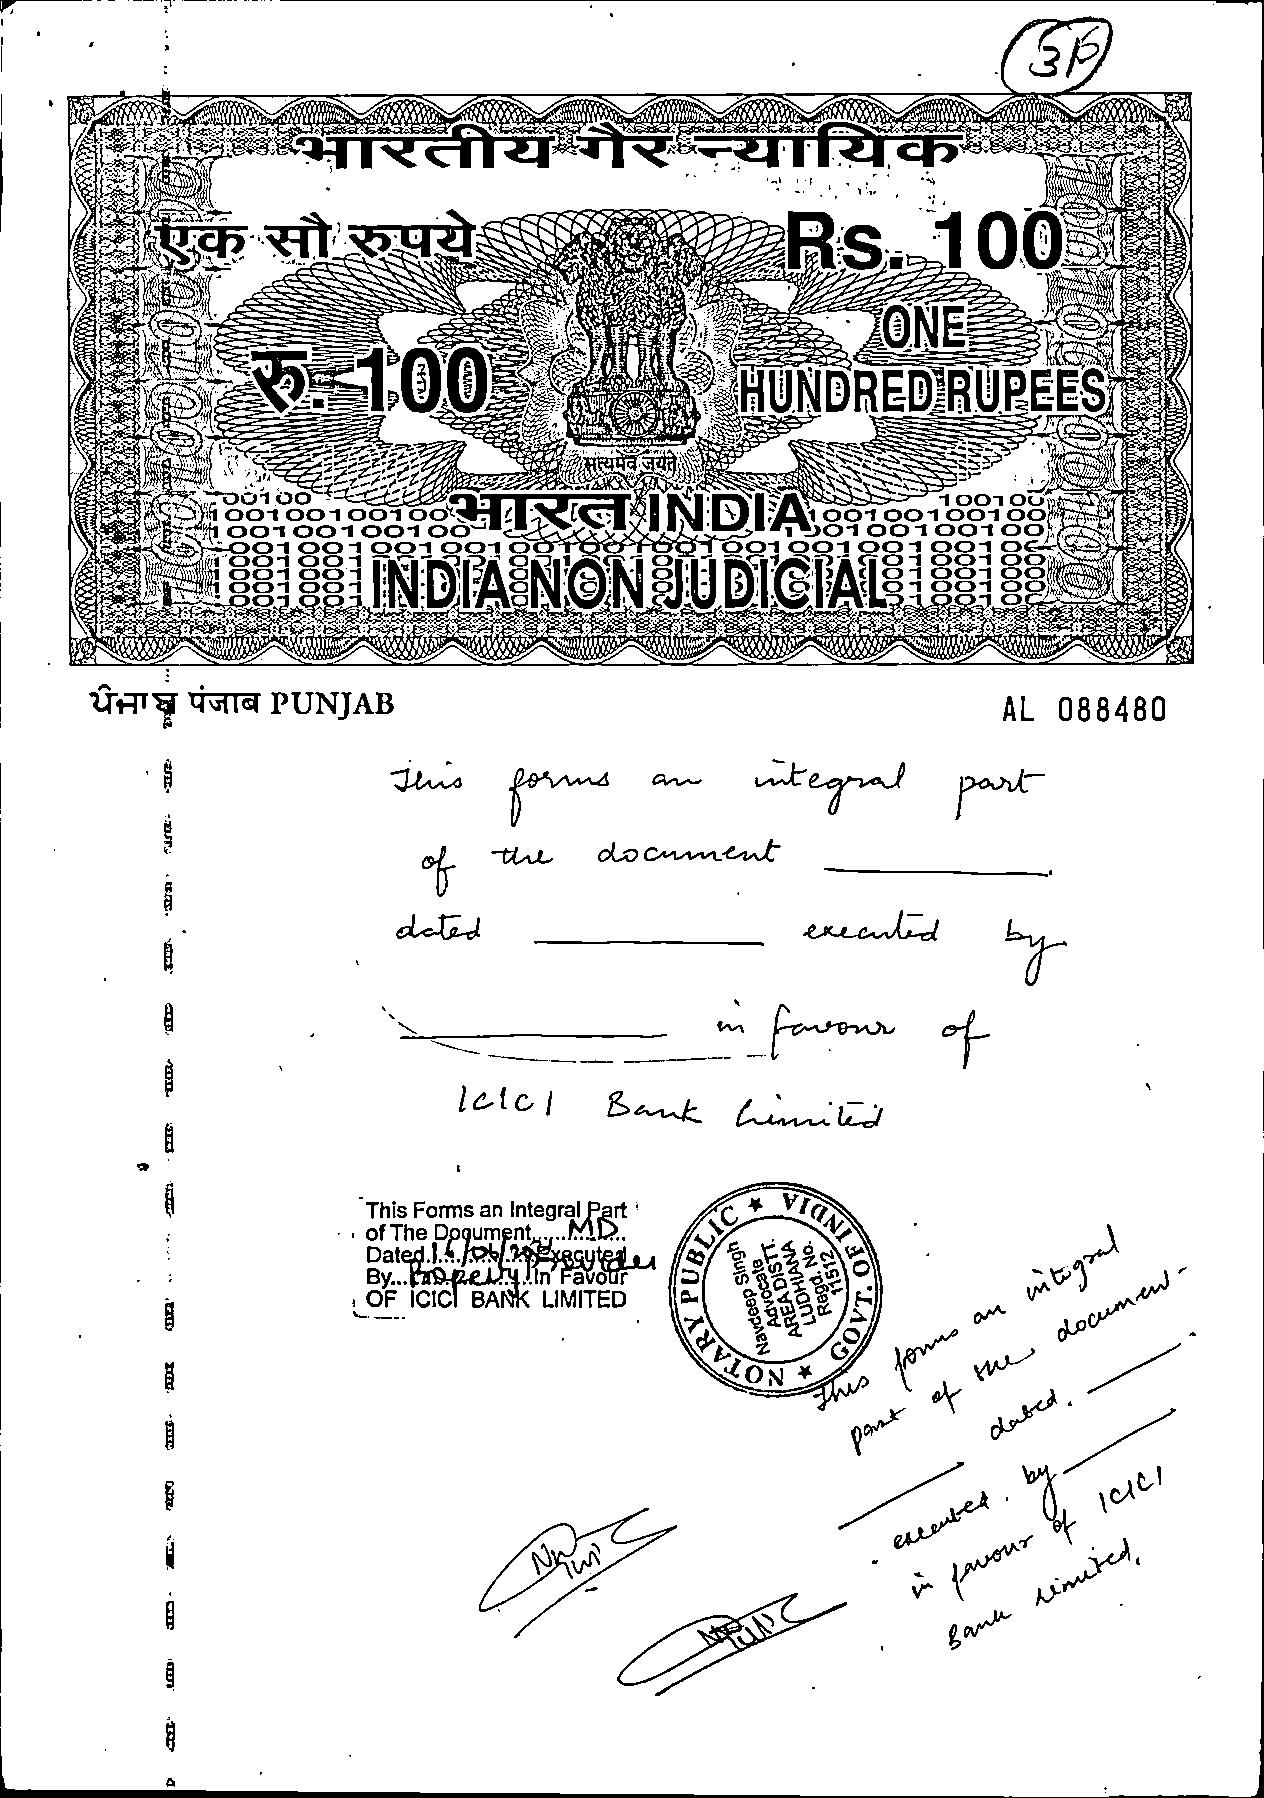 3B
भारतीय गैर न्यायिक
एक सौ रुपये
Rs. 100
रु. 100
ONE
HUNDRED RUPEES
सत्यमेव जयते
भारत INDIA
INDIA NON JUDICIAL
ਪੰਜਾਬ पंजाब PUNJAB
AL 088480
This forms an integral part
of the document
dated executed by
in favour of
ICICI Bank Limited
This Forms an Integral Part
of The Document MD
Dated Executed
By Property Provider In Favour
OF ICICI BANK LIMITED
NOTARY PUBLIC ★ GOVT. OF INDIA ★
Navdeep Singh
Advocate
AREA DISTT.
LUDHIANA
Regd. No.
11512
This forms an integral
part of the document
dated.
executed by
in favour of ICICI
Bank Limited.